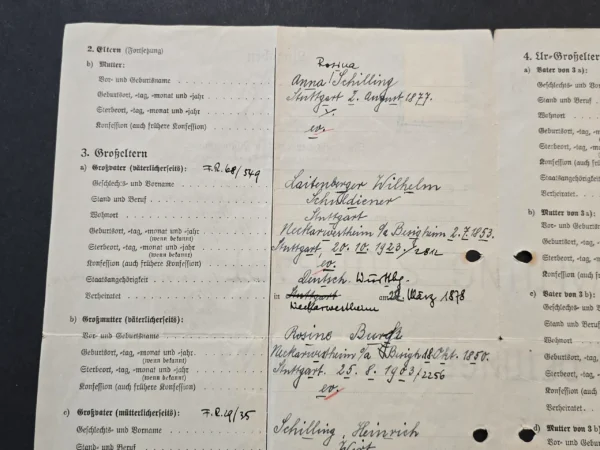 2. Eltern (Fortsetzung)
b) Mutter:
Rosina
Vor- und Geburtsname Anna Schilling
Geburtsort, -tag, -monat und -jahr Stuttgart 2. August 1877.
Sterbeort, -tag, -monat und -jahr
Konfession (auch frühere Konfession) ev.
3. Großeltern
a) Großvater (väterlicherseits): F.R. 68/549
Geschlechts- und Vorname Laitenberger Wilhelm
Stand und Beruf Schuldiener
Wohnort Stuttgart
Geburtsort, -tag, -monat und -jahr Neckarwestheim 2.7.1853.
(wenn bekannt)
Sterbeort, -tag, -monat und -jahr Stuttgart, 20. 10. 1923
(wenn bekannt)
Konfession (auch frühere Konfession) ev.
Staatsangehörigkeit Deutsch. Württbg.
Verheiratet in Stuttgart am März 1878
Neckarwestheim
b) Großmutter (väterlicherseits):
Vor- und Geburtsname Rosine
Geburtsort, -tag, -monat und -jahr Neckarwestheim 18. Okt. 1850.
(wenn bekannt)
Sterbeort, -tag, -monat und -jahr Stuttgart. 25. 8. /2256
(wenn bekannt)
Konfession (auch frühere Konfession) ev.
c) Großvater (mütterlicherseits): F.R. 19/35
Geschlechts- und Vorname Schilling, Heinrich
Stand- und Beruf Wirt
4. Ur-Großelter
a) Vater von 3 a):
Geschlechts- und Vor
Stand und Beruf
Wohnort
Geburtsort, -tag, -mo
Sterbeort, -tag, -mon
Konfession (auch früh
Staatsangehörigkeit
Verheiratet
b) Mutter von 3 a):
Vor- und Geburtsna
Geburtsort, -tag, -m
Sterbeort, -tag, -mo
Konfession (auch fr
c) Vater von 3 b):
Geschlechts- und V
Stand und Beruf
Wohnort
Geburtsort, -tag,
Sterbeort, -tag, -m
Konfession (auch
Verheiratet
d) Mutter von 3 b)
Vor- und Geburt